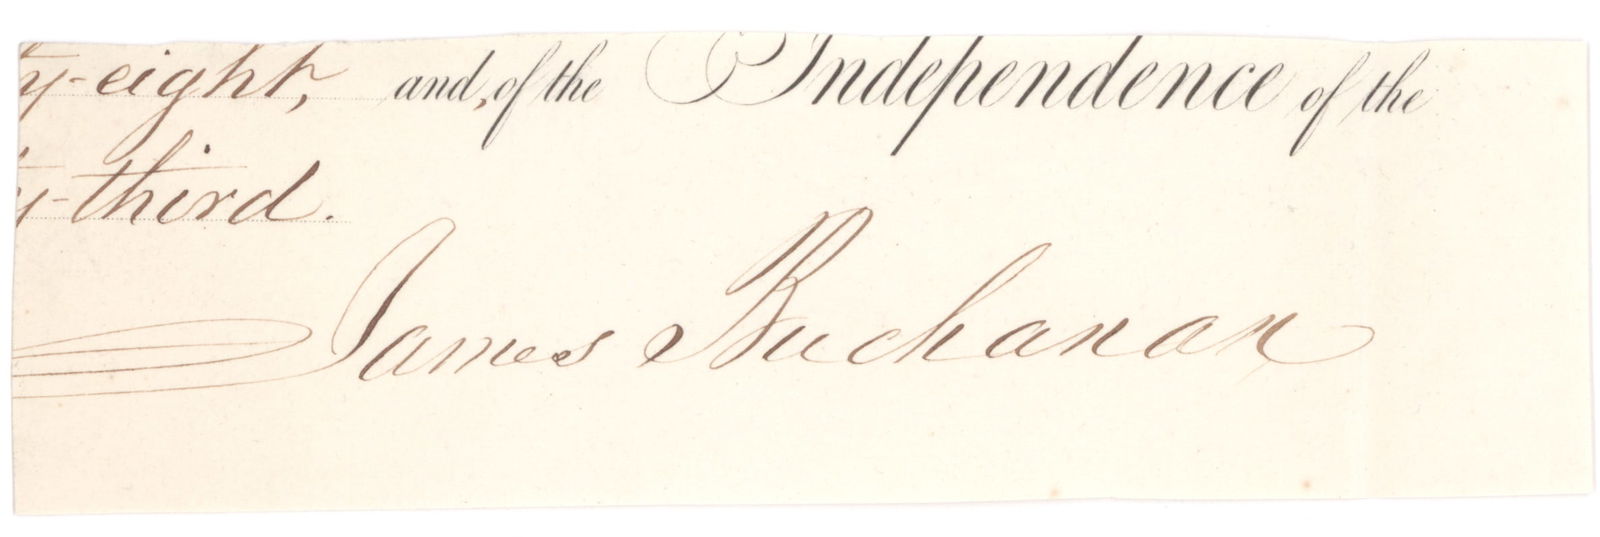 ty-eight, and, of the Independence of the
y-third.
James Buchanan